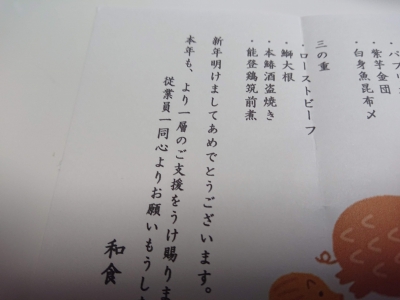 ・紫芋金団
・白身魚昆布〆
三の重
・ローストビーフ
・鰤大根
・本鰆酒盗焼き
・能登鶏筑前煮
新年明けましてあめでとうございます。
本年も、より一層のご支援をうけ賜りま
従業員一同心よりお願いもうし
和食